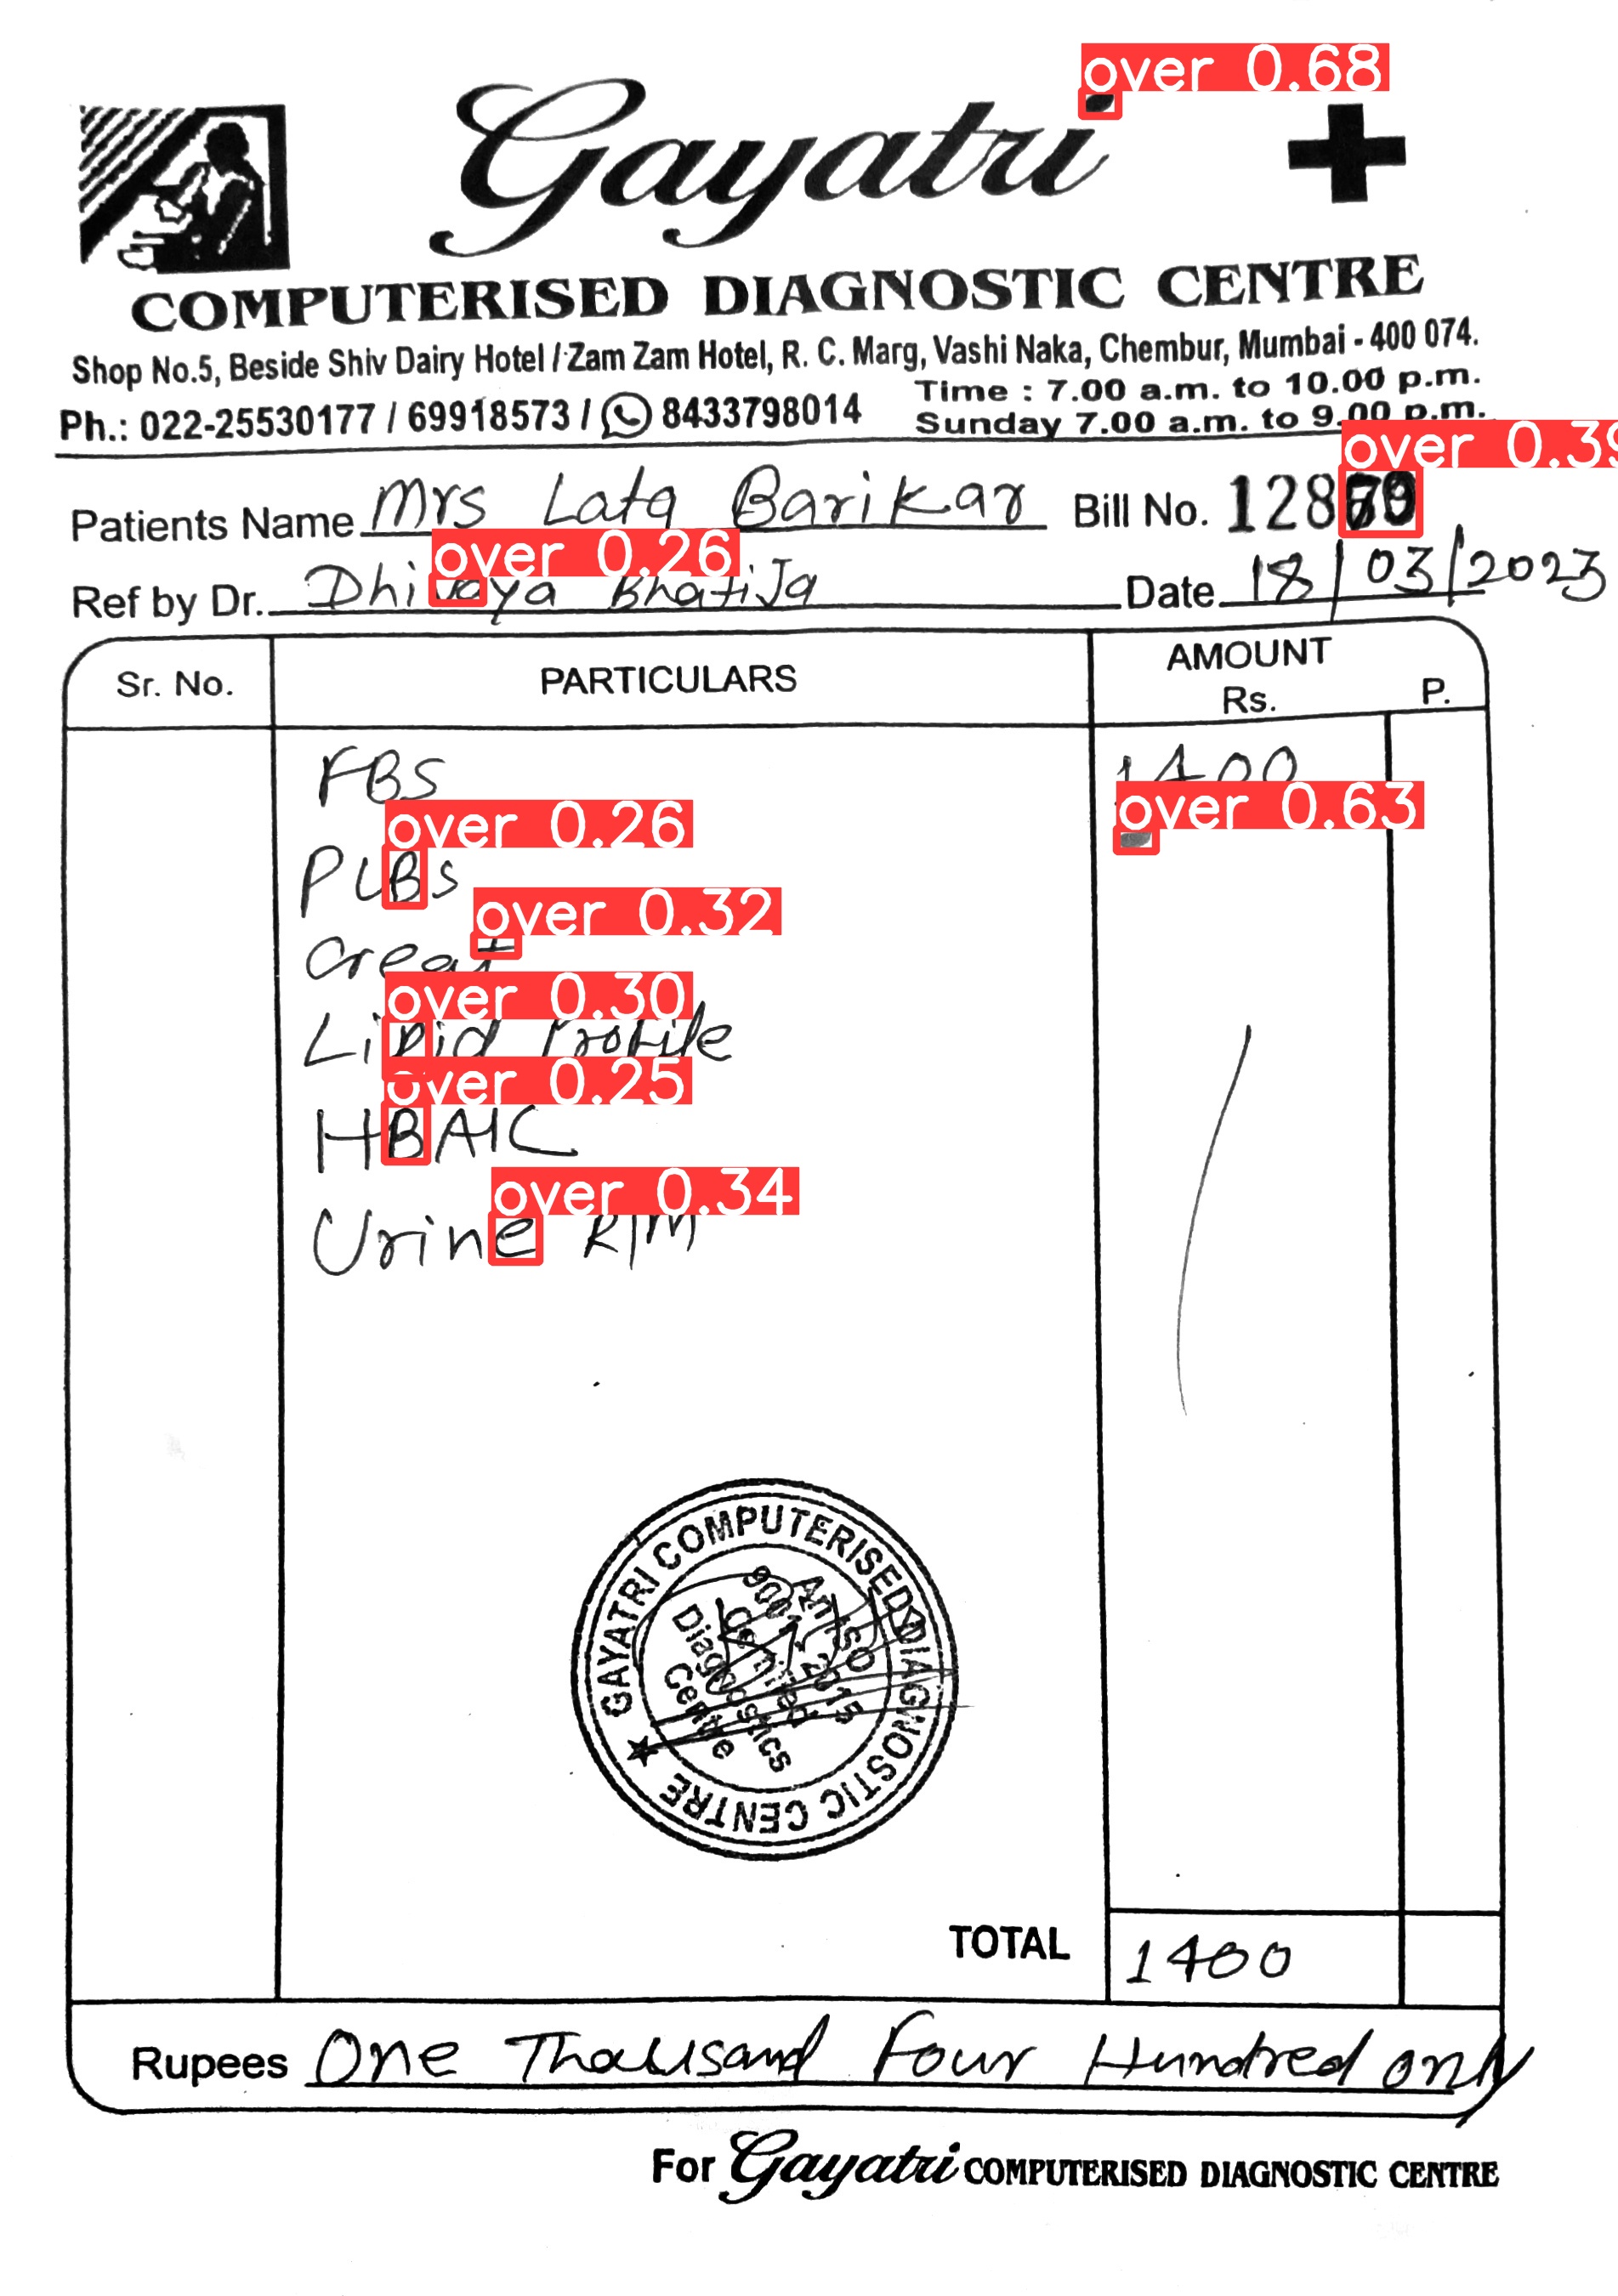 over 0.68
Gayatri
COMPUTERISED DIAGNOSTIC CENTRE
Shop No.5, Beside Shiv Dairy Hotel / Zam Zam Hotel, R. C. Marg, Vashi Naka, Chembur, Mumbai - 400 074.
Time : 7.00 a.m. to 10.00 p.m.
Ph.: 022-25530177 / 69918573 / 8433798014
Sunday 7.00 a.m. to 9.00 p.m.
over 0.39
Patients Name Mrs Lata Barikar Bill No. 128
over 0.26
Ref by Dr. Bhatija Date 18/03/2023
Sr. No. PARTICULARS AMOUNT Rs. P.
FBS 1400
over 0.26 over 0.63
PLBS
over 0.32
Creat
over 0.30
Lipid Profile
over 0.25
HBA1C
over 0.34
Urine R/M
GAYATRI COMPUTERISED DIAGNOSTIC CENTRE ★
An ISO
9001:2015
Certified
Diagnostics
Centre
TOTAL 1400
Rupees One Thousand Four Hundred only
For Gayatri COMPUTERISED DIAGNOSTIC CENTRE